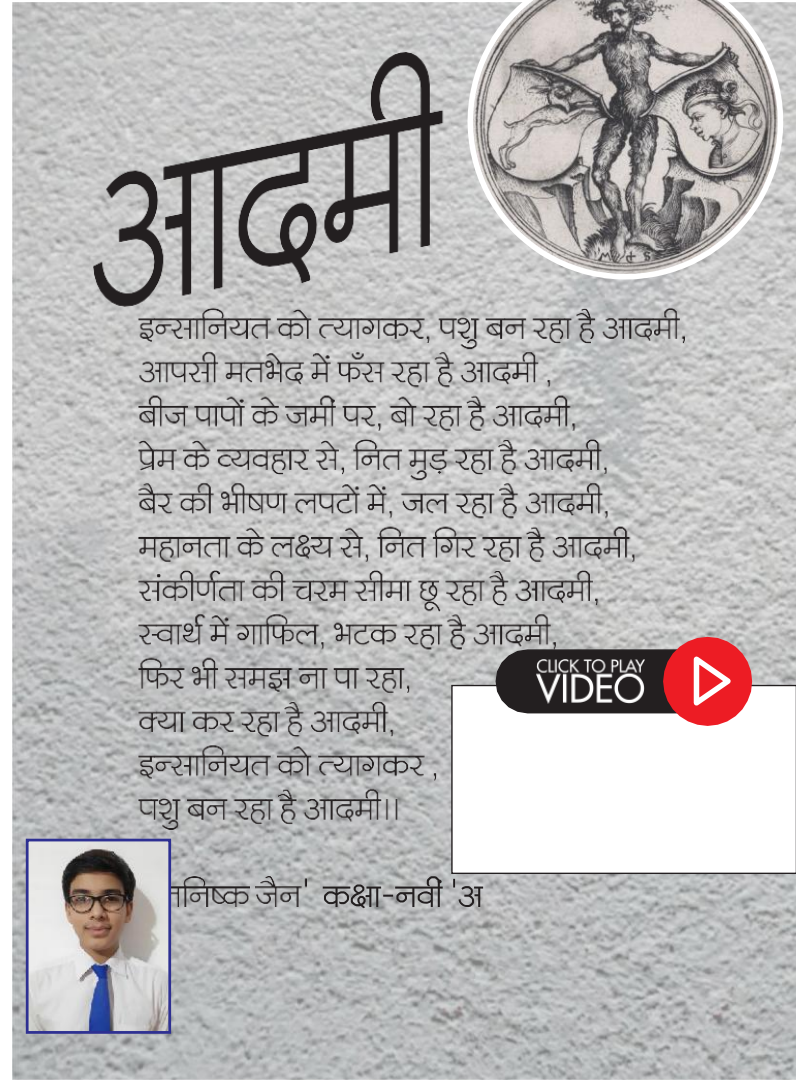 आदमी
इन्सानियत को त्यागकर, पशु बन रहा है आदमी,
आपसी मतभेद में फँस रहा है आदमी ,
बीज पापों के जमीं पर, बो रहा है आदमी,
प्रेम के व्यवहार से, नित मुड़ रहा है आदमी,
बैर की भीषण लपटों में, जल रहा है आदमी,
महानता के लक्ष्य से, नित गिर रहा है आदमी,
संकीर्णता की चरम सीमा छू रहा है आदमी,
स्वार्थ में गाफिल, भटक रहा है आदमी,
फिर भी समझ ना पा रहा,
क्या कर रहा है आदमी,
इन्सानियत को त्यागकर ,
पशु बन रहा है आदमी।।
CLICK TO PLAY
VIDEO
जैन' कक्षा-नवीं 'अ